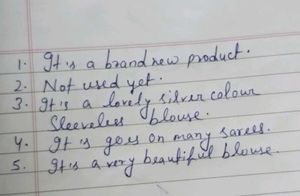 1. It's a brand new product.
2. Not used yet.
3. It's a lovely silver colour
Sleeveless blouse.
4. It's goes on many sarees.
5. It's a very beautiful blouse.